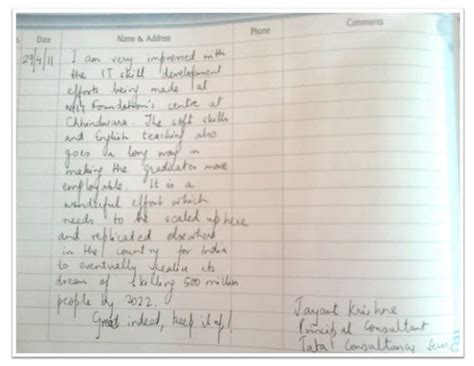 Date Name & Address Phone Comments
29/4/11 I am very impressed with
the IT skill development
efforts being made at
NIIT Foundation's centre at
Chhindwara. The soft skills
and English teaching also
goes a long way in
making the graduates more
employable. It is a
wonderful effort which
needs to be scaled up here
and replicated elsewhere
in the country for India
to eventually realise its
dream of skilling 500 million
people by 2022.
Great indeed, keep it up!
Jayant Krishna
Principal Consultant
Tata Consultancy